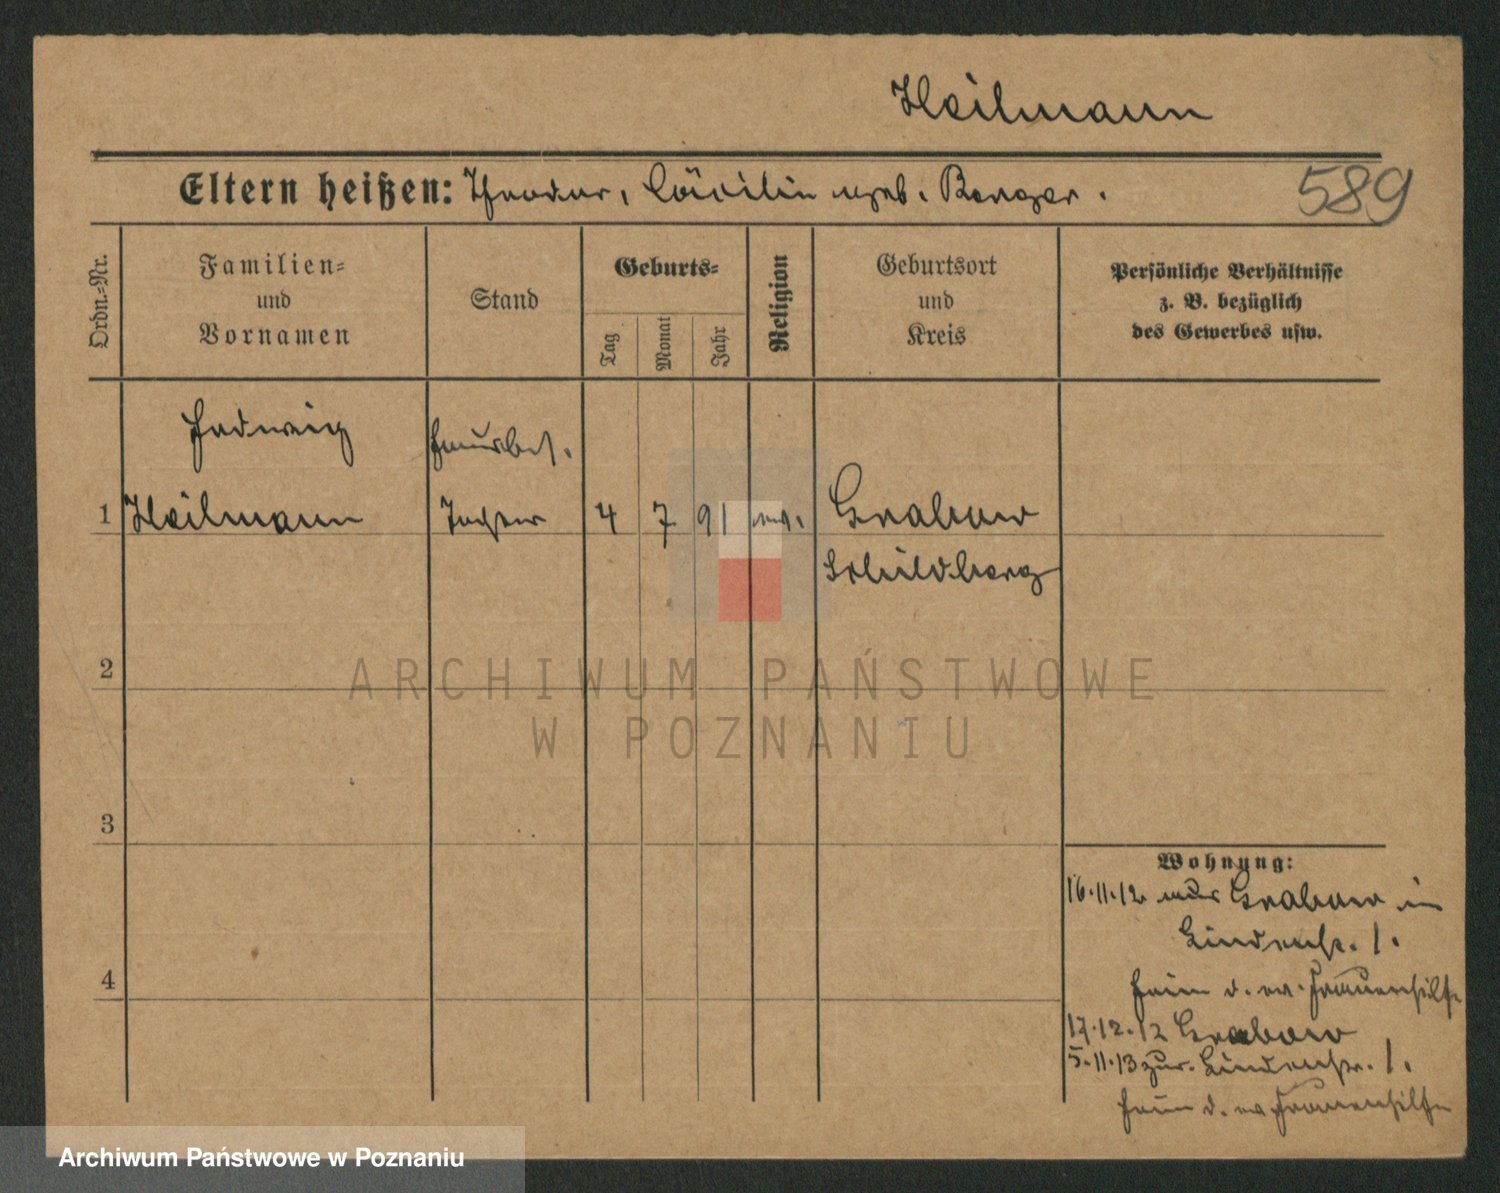 Heilmann
Eltern heißen: Theodor, Cäcilie geb. Berger.
589
Ordn.-Nr.
Familien-
und
Vornamen
Stand
Geburts-
Tag
Monat
Jahr
Religion
Geburtsort
und
Kreis
Persönliche Verhältnisse
z. B. bezüglich
des Gewerbes usw.
Hedwig
1 Heilmann
Tochter
4 7 91 ev.
Grabow
Schildberg
2
3
4
Wohnung:
16.11.12 aus Grabow in
Lindenstr. 1.
Heim d. ev. Frauenhilfe
17.12.12 Grabow
5.11.13 zur. Lindenstr. 1.
Heim d. ev. Frauenhilfe
ARCHIWUM PAŃSTWOWE
W POZNANIU
Archiwum Państwowe w Poznaniu